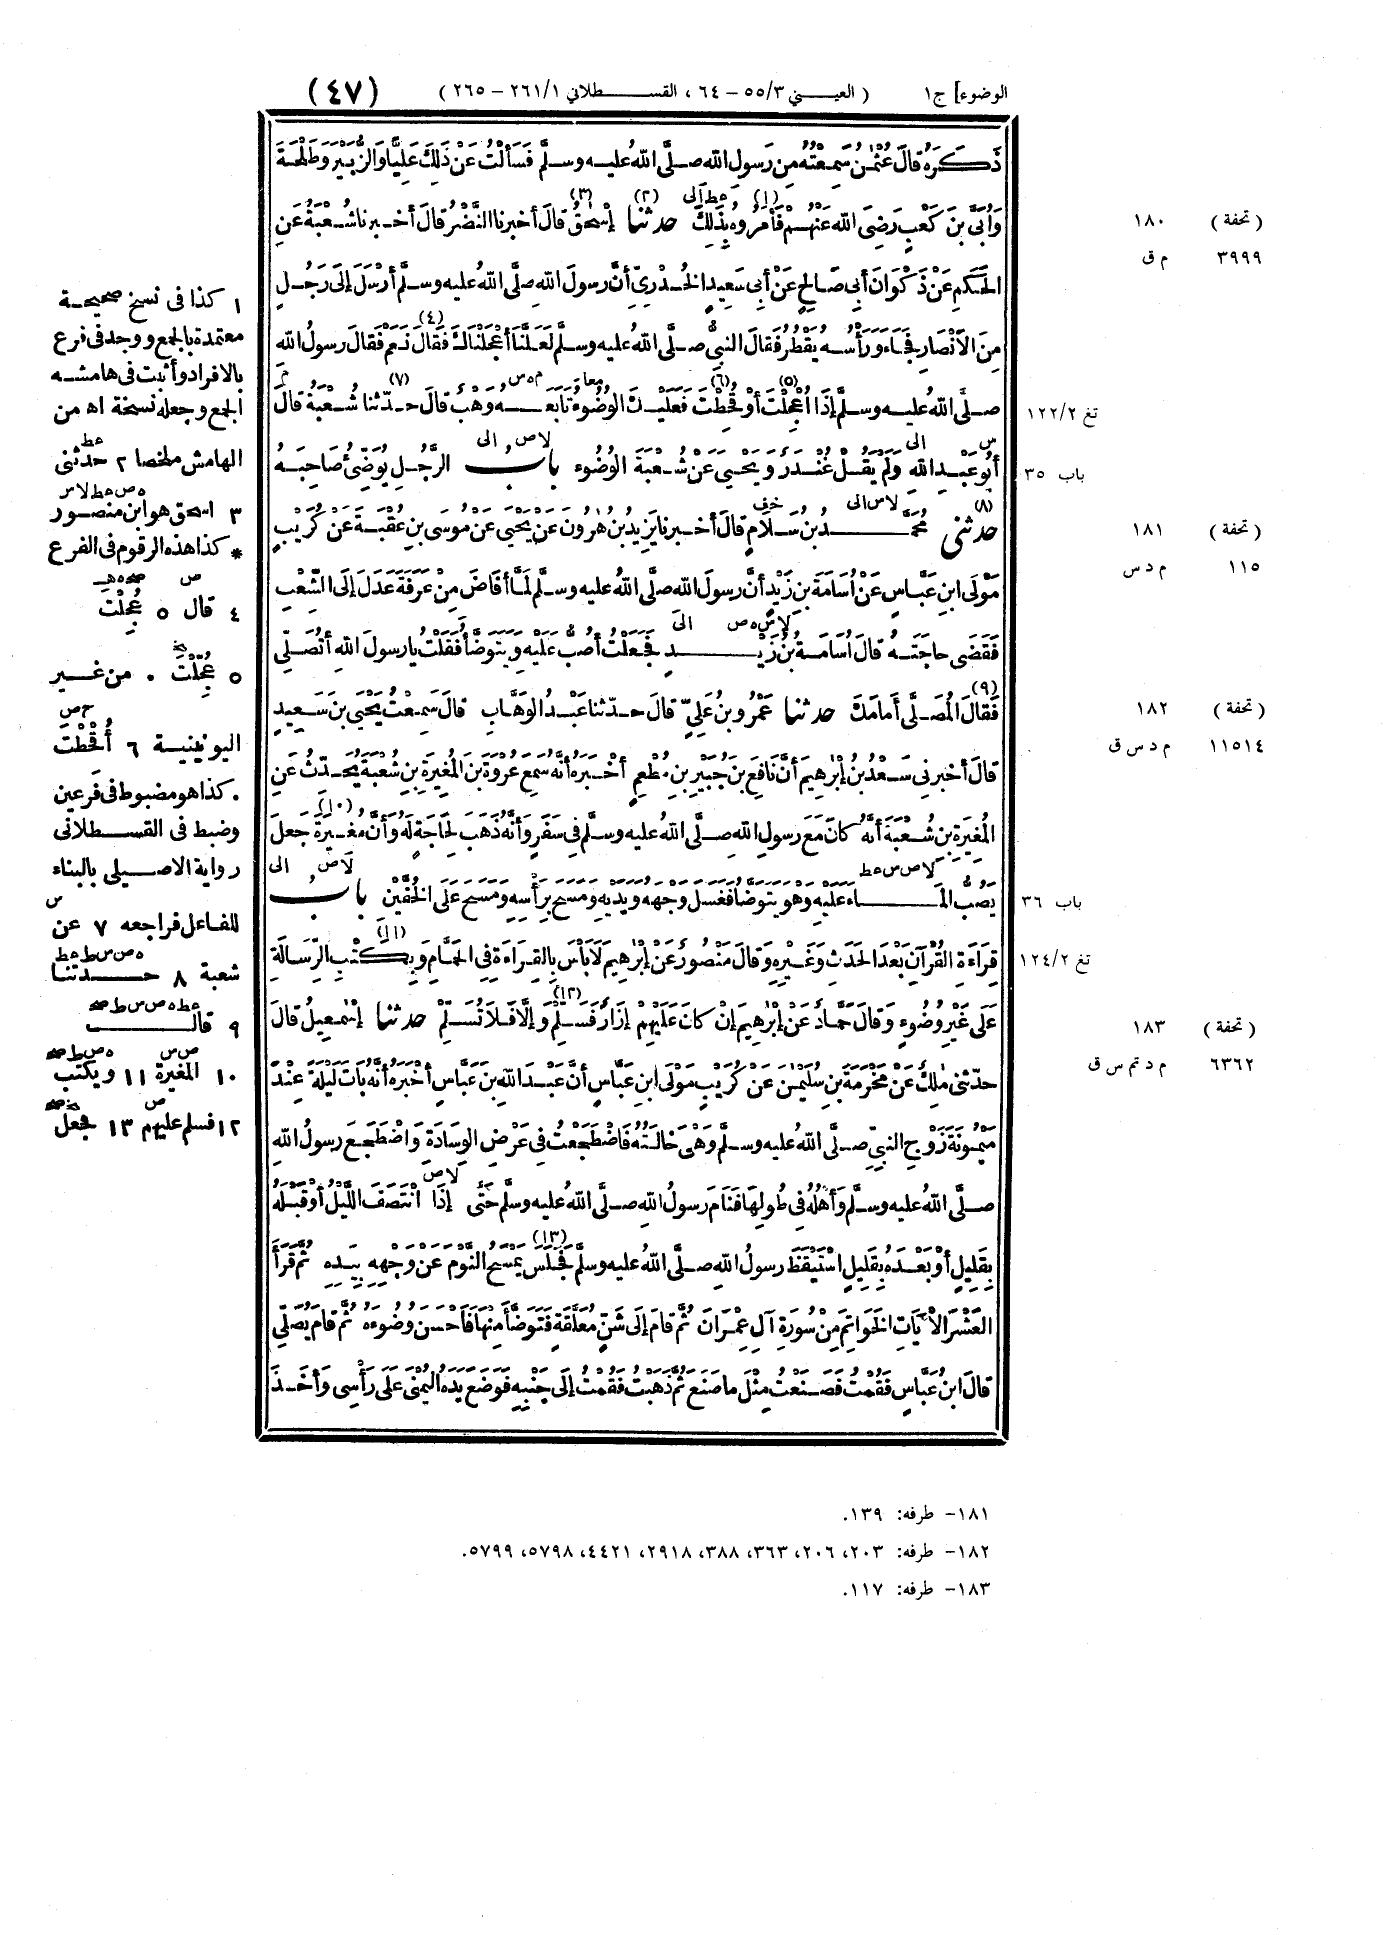 الوضوء] ج١
(العيني ٥٥/٣ – ٦٤، القسطلاني ٢٦١/١ – ٢٦٥)
(٤٧)
ذَكَرَهُ قَالَ عُثْمٰنُ سَمِعْتُهُ مِنْ رَسُولِ اللهِ صلَّى اللهُ عليه وسلَّم فَسَأَلْتُ عَنْ ذَلِكَ عَلِيًّا وَالزُّبَيْرَ وَطَلْحَةَ
وَأُبَيَّ بْنَ كَعْبٍ رَضِيَ اللهُ عَنْهُمْ فَأَمَرُوهُ بِذَلِكَ حدثنا إِسْحٰقُ قَالَ أخبرنا النَّضْرُ قَالَ أخبرنا شُعْبَةُ عَنِ
الحَكَمِ عَنْ ذَكْوَانَ أَبِي صَالِحٍ عَنْ أَبِي سَعِيدٍ الخُدْرِيِّ أَنَّ رسولَ اللهِ صلَّى اللهُ عليه وسلَّم أَرْسَلَ إِلَى رَجُلٍ
مِنَ الأَنْصَارِ فَجَاءَ وَرَأْسُهُ يَقْطُرُ فَقَالَ النبيُّ صلَّى اللهُ عليه وسلَّم لَعَلَّنَا أَعْجَلْنَاكَ فَقَالَ نَعَمْ فَقَالَ رسولُ اللهِ
صلَّى اللهُ عليه وسلَّم إِذَا أُعْجِلْتَ أَوْ قُحِطْتَ فَعَلَيْكَ الوُضُوءُ تَابَعَهُ وَهْبٌ قَالَ حدّثنا شُعْبَةُ قَالَ
أَبُو عَبْدِ اللهِ وَلَمْ يَقُلْ غُنْدَرٌ وَيَحْيَى عَنْ شُعْبَةَ الوُضُوءُ بابُ الرَّجُلِ يُوَضِّئُ صَاحِبَهُ
حدثني مُحَمَّدُ بْنُ سَلَامٍ قَالَ أخبرنا يَزِيدُ بْنُ هٰرُونَ عَنْ يَحْيَى عَنْ مُوسَى بنِ عُقْبَةَ عَنْ كُرَيْبٍ
مَوْلَى ابنِ عَبَّاسٍ عَنْ أُسَامَةَ بنِ زَيْدٍ أَنَّ رسولَ اللهِ صلَّى اللهُ عليه وسلَّم لَمَّا أَفَاضَ مِنْ عَرَفَةَ عَدَلَ إِلَى الشِّعْبِ
فَقَضَى حاجَتَهُ قَالَ أُسَامَةُ بْنُ زَيْدٍ فَجَعَلْتُ أَصُبُّ عَلَيْهِ وَيَتَوَضَّأُ فَقُلْتُ يا رسولَ اللهِ أَتُصَلِّي
فَقَالَ المُصَلَّى أَمَامَكَ حدثنا عَمْرُو بنُ عَلِيٍّ قَالَ حدّثنا عَبْدُ الوَهَّابِ قَالَ سَمِعْتُ يَحْيَى بنَ سَعِيدٍ
قَالَ أخبرني سَعْدُ بْنُ إِبْرٰهِيمَ أَنَّ نَافِعَ بنَ جُبَيْرِ بنِ مُطْعِمٍ أَخْبَرَهُ أَنَّهُ سَمِعَ عُرْوَةَ بنَ المُغِيرَةِ بنِ شُعْبَةَ يُحَدِّثُ عَنِ
المُغِيرَةِ بنِ شُعْبَةَ أَنَّهُ كَانَ مَعَ رسولِ اللهِ صلَّى اللهُ عليه وسلَّم فِي سَفَرٍ وَأَنَّهُ ذَهَبَ لِحَاجَةٍ لَهُ وَأَنَّ مُغِيرَةَ جَعَلَ
يَصُبُّ المَاءَ عَلَيْهِ وَهُوَ يَتَوَضَّأُ فَغَسَلَ وَجْهَهُ وَيَدَيْهِ وَمَسَحَ بِرَأْسِهِ وَمَسَحَ عَلَى الخُفَّيْنِ بابُ
قِرَاءَةِ القُرْآنِ بَعْدَ الحَدَثِ وَغَيْرِهِ وَقَالَ مَنْصُورٌ عَنْ إِبْرٰهِيمَ لَا بَأْسَ بِالقِرَاءَةِ فِي الحَمَّامِ وَبِكَتْبِ الرِّسَالَةِ
عَلَى غَيْرِ وُضُوءٍ وَقَالَ حَمَّادٌ عَنْ إِبْرٰهِيمَ إِنْ كَانَ عَلَيْهِمْ إِزَارٌ فَسَلِّمْ وَإِلَّا فَلَا تُسَلِّمْ حدثنا إِسْمٰعِيلُ قَالَ
حدّثني مٰلِكٌ عَنْ مَخْرَمَةَ بنِ سُلَيْمٰنَ عَنْ كُرَيْبٍ مَوْلَى ابنِ عَبَّاسٍ أَنَّ عَبْدَ اللهِ بنَ عَبَّاسٍ أَخْبَرَهُ أَنَّهُ بَاتَ لَيْلَةً عِنْدَ
مَيْمُونَةَ زَوْجِ النبيِّ صلَّى اللهُ عليه وسلَّم وَهْيَ خَالَتُهُ فَاضْطَجَعْتُ فِي عَرْضِ الوِسَادَةِ وَاضْطَجَعَ رسولُ اللهِ
صلَّى اللهُ عليه وسلَّم وَأَهْلُهُ فِي طُولِهَا فَنَامَ رسولُ اللهِ صلَّى اللهُ عليه وسلَّم حَتَّى إِذَا انْتَصَفَ اللَّيْلُ أَوْ قَبْلَهُ
بِقَلِيلٍ أَوْ بَعْدَهُ بِقَلِيلٍ اسْتَيْقَظَ رسولُ اللهِ صلَّى اللهُ عليه وسلَّم فَجَلَسَ يَمْسَحُ النَّوْمَ عَنْ وَجْهِهِ بِيَدِهِ ثُمَّ قَرَأَ
العَشْرَ الآيَاتِ الخَوَاتِمَ مِنْ سُورَةِ آلِ عِمْرَانَ ثُمَّ قَامَ إِلَى شَنٍّ مُعَلَّقَةٍ فَتَوَضَّأَ مِنْهَا فَأَحْسَنَ وُضُوءَهُ ثُمَّ قَامَ يُصَلِّي
قَالَ ابنُ عَبَّاسٍ فَقُمْتُ فَصَنَعْتُ مِثْلَ مَا صَنَعَ ثُمَّ ذَهَبْتُ فَقُمْتُ إِلَى جَنْبِهِ فَوَضَعَ يَدَهُ اليُمْنَى عَلَى رَأْسِي وَأَخَذَ
(تحفة) ١٨٠
٣٩٩٩ م ق
تغ ١٢٢/٢
باب ٣٥
(تحفة) ١٨١
١١٥ م د س
(تحفة) ١٨٢
١١٥١٤ م د س ق
باب ٣٦
تغ ١٢٤/٢
(تحفة) ١٨٣
٦٣٦٢ م د تم س ق
١ كذا فى نسخ صحيحة
معتمدة بالجمع ووجد فى فرع
بالافراد وأثبت فى هامشه
الجمع وجعله نسخة اه من
الهامش ملخصا ٢ حدثنى
٣ اسحق هو ابن منصور
* كذا هذه الرقوم فى الفرع
٤ قال ٥ عُجِلْتَ
٥ عُجِّلْتَ . من غير
اليونينية ٦ أُقْحِطْتَ
. كذا هو مضبوط فى فرعين
وضبط فى القسطلانى
رواية الاصيلى بالبناء
للفاعل فراجعه ٧ عن
شعبة ٨ حدثنا
٩ قال
١٠ المغيرة ١١ ويكتب
١٢ فسلم عليهم ١٣ فجعل
١٨١– طرفه: ١٣٩.
١٨٢– طرفه: ٢٠٣، ٢٠٦، ٣٦٣، ٣٨٨، ٢٩١٨، ٤٤٢١، ٥٧٩٨، ٥٧٩٩.
١٨٣– طرفه: ١١٧.